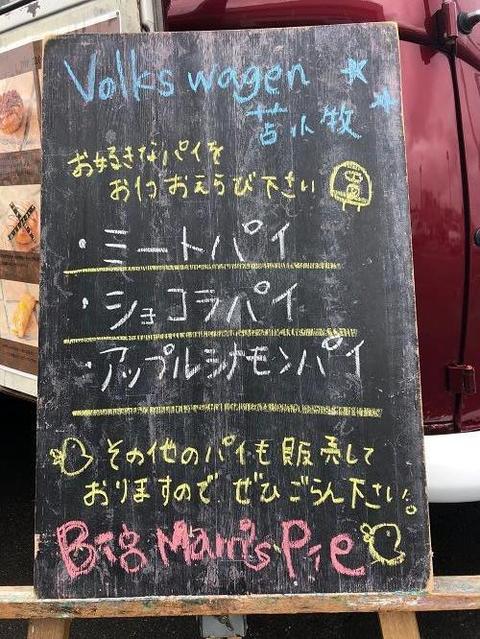 Volkswagen
苫小牧
お好きなパイを
お1つおえらび下さい
・ミートパイ
・ショコラパイ
・アップルシナモンパイ
その他のパイも販売して
おりますので ぜひごらん下さい。
Big Mam's Pie